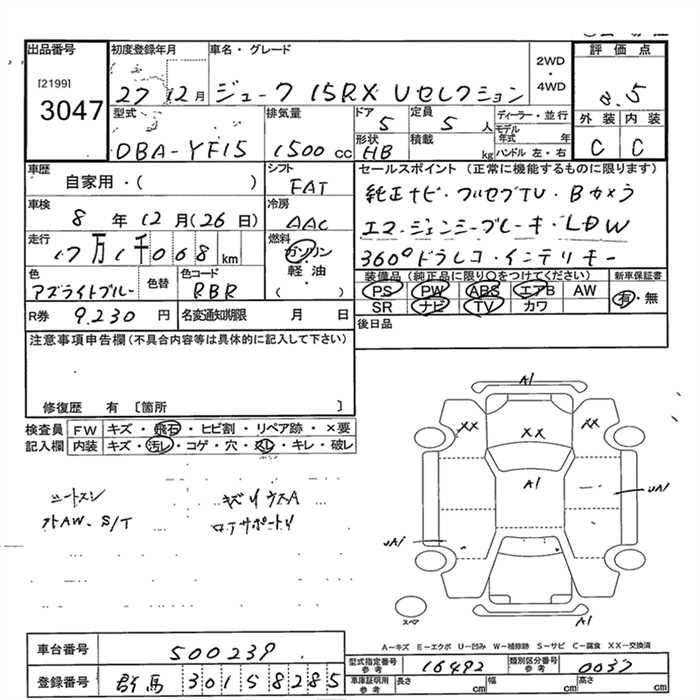 出品番号 初度登録年月 車名・グレード 2WD・4WD 評価点
[2199]
3047
27 12月 ジューク 15RX Vセレクション 3.5
型式 排気量 ドア 定員 ディーラー・並行 外装 内装
5 5人 モデル年式 年
DBA-YF15 1500cc 形状 HB 積載 kg ハンドル 左・右 C C
車歴 自家用・( ) シフト FAT セールスポイント (正常に機能するものに限ります)
車検 8年12月(26日) 冷房 AAC 純正ナビ・フルセグTV・Bカメラ
エマージェンシーブレーキ・LDW
走行 7万1千068km 燃料 ガソリン・軽油・( ) 360°ドラレコ・インテリキー
色 アズライトブルー 色替 色コード RBR 装備品(純正品に限り○をつけてください) 新車保証書
PS PW ABS エアB AW 有・無
SR ナビ TV カワ
R券 9,230円 名変通知期限 月 日 後日品
注意事項申告欄(不具合内容等は具体的に記入して下さい)
修復歴 有 〔箇所 〕
検査員 FW キズ・飛石・ヒビ割・リペア跡・×要
記入欄 内装 キズ・汚レ・コゲ・穴・スレ・キレ・破レ
シートスレ キズ
外AW・S/T ロアサポート
A1
XX XX XX
A1
UA1
UA1
スペア A1
A-キズ E-エクボ U-凹み W-補修跡 S-サビ C-腐食 XX-交換済
車台番号 500239
型式指定番号 参考 16492 類別区分番号 参考 0037
登録番号 群馬 301 5 8285
車庫証明用 参考 長さ cm 幅 cm 高さ cm